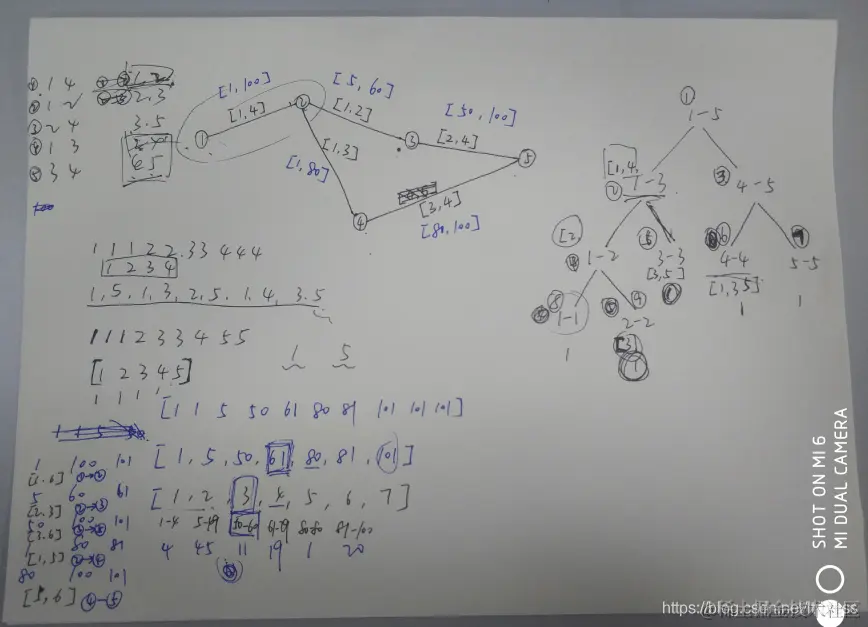 1 4
1 2
2 4
1 3
3 4
1.2
2.3
3.5
65
[1,100]
[1,4]
[5,60]
[1,2]
[50,100]
[2,4]
[1,3]
[1,80]
[3,4]
[80,100]
① ② ③ ④ ⑤
1 1 1 2 2 33 444
1 2 3 4
1,5,1,3,2,5,1.4,3.5
1 1 1 2 3 3 4 5 5
[1 2 3 4 5]
1 1 1 1
1 5
[1 1 5 50 61 80 81 101 101 101]
[1,5,50,61,80,81,101]
[1,2,3,4,5,6,7]
1-4 50-60 80-80 81-100
4 45 11 19 1 20
1 100 101
5 60 61
[2.3] ②→③
50 100 101
[3.6]
1 80 81
[1,5] ②→④
80 100 101
[5,6] ④→⑤
①
1-5
[1,4,
② 1-3
③ 4-5
[2
1-2
3-3
[3,5]
6
4-4
[1,35]
1
5-5
1
⑧
1-1
1
⑨
2-2
[3]
1
SHOT ON MI 6
MI DUAL CAMERA